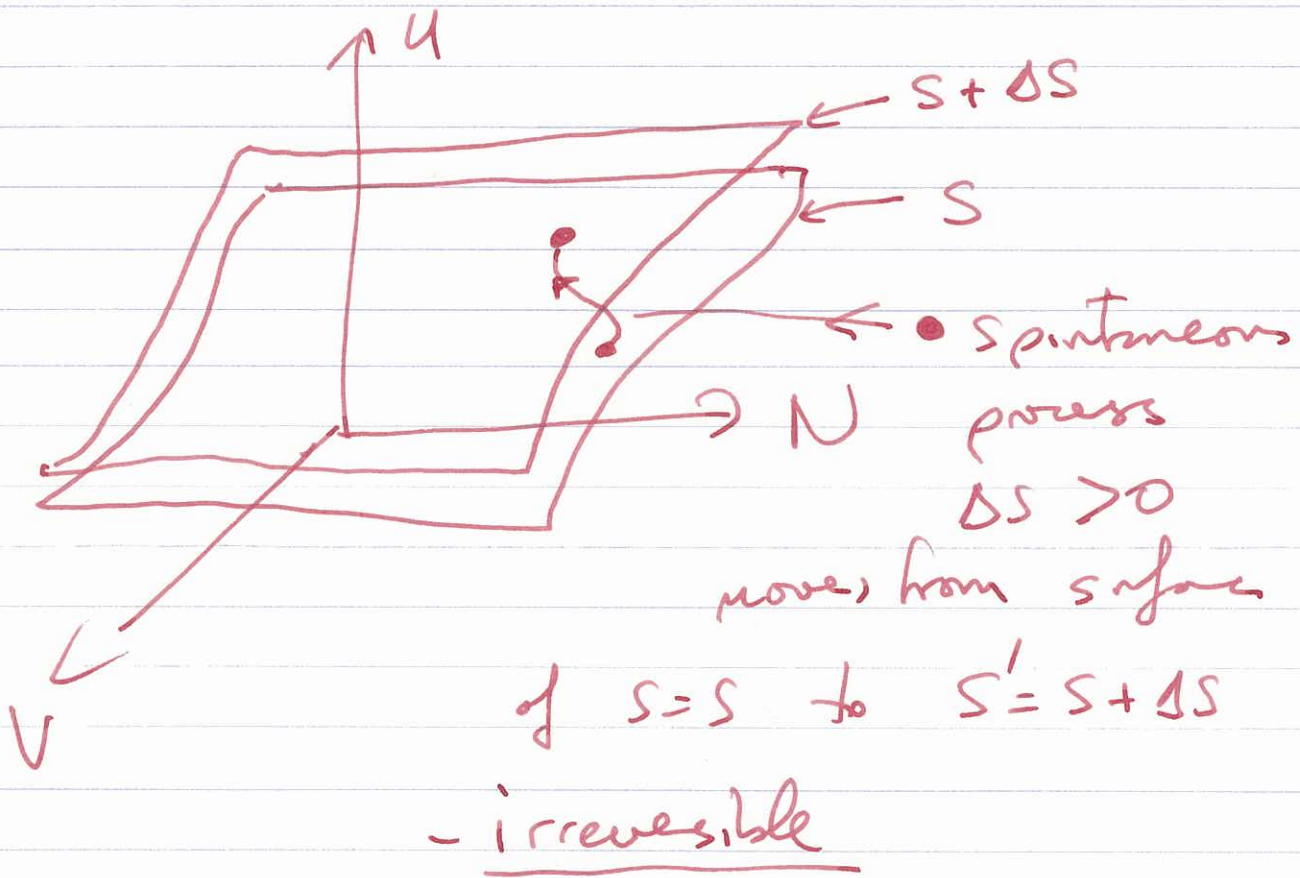 U
S + ΔS
S
• spontaneous
N process
ΔS > 0
moves from surface
V of S = S to S' = S + ΔS
- irreversible